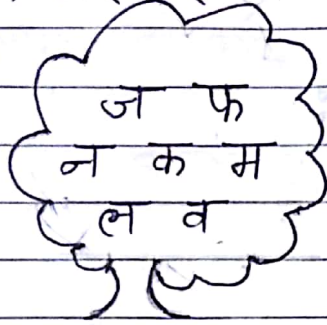 ज फ
न क म
ल व